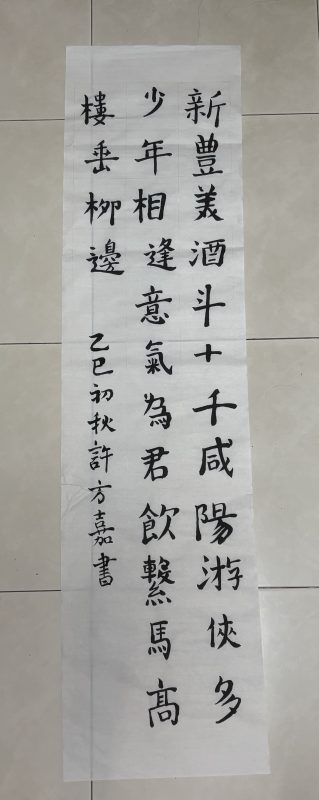 新豐美酒斗十千咸陽游俠多
少年相逢意氣為君飲繫馬高
樓垂柳邊 乙巳初秋許方嘉書